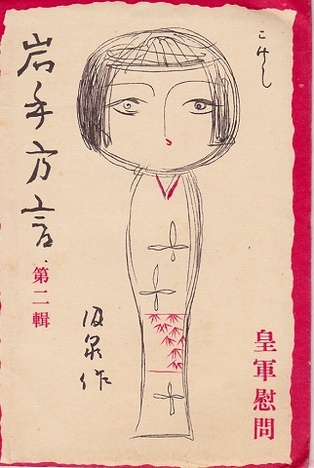 こけし
皇軍慰問
岩手方言
第二輯
泉作